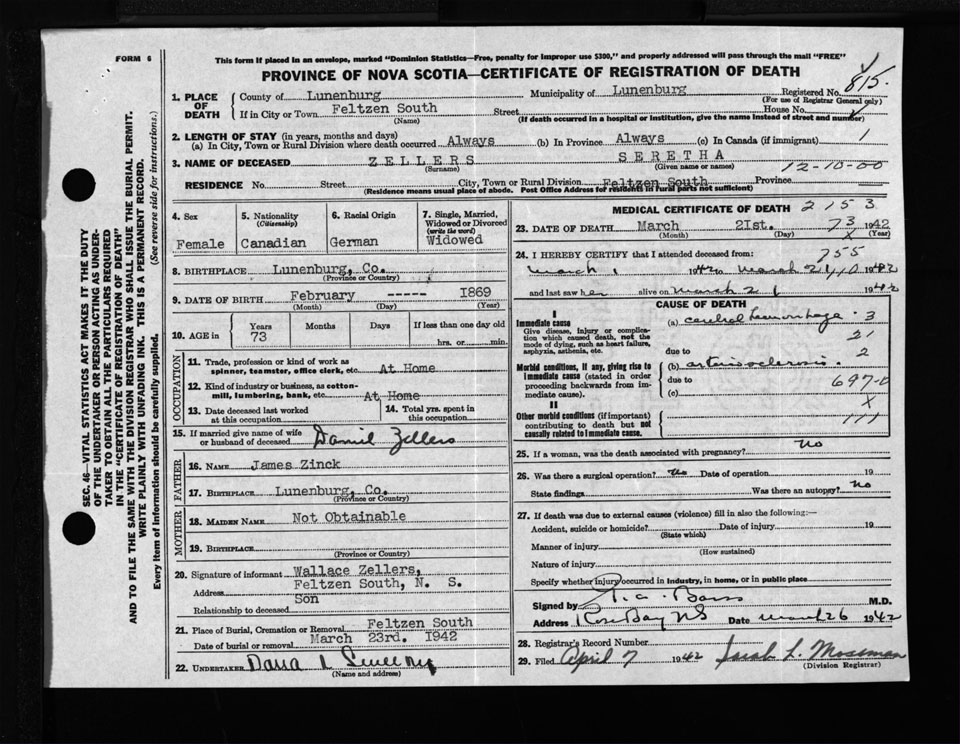 FORM 6
This form if placed in an envelope, marked "Dominion Statistics—Free, penalty for improper use $300," and properly addressed will pass through the mail "FREE"
PROVINCE OF NOVA SCOTIA—CERTIFICATE OF REGISTRATION OF DEATH
815.
1. PLACE OF DEATH
County of Lunenburg Municipality of Lunenburg Registered No.
(For use of Registrar General only)
If in City or Town Feltzen South Street House No.
(Name) (If death occurred in a hospital or institution, give the name instead of street and number)
2. LENGTH OF STAY (in years, months and days)
(a) In City, Town or Rural Division where death occurred Always (b) In Province Always (c) In Canada (if immigrant) 1
3. NAME OF DECEASED ZELLERS SERETHA
(Surname) (Given name or names) 12-10-00
RESIDENCE No. Street City, Town or Rural Division Feltzen South Province
(Residence means usual place of abode. Post Office Address for residents in rural parts not sufficient)
SEC. 46—VITAL STATISTICS ACT MAKES IT THE DUTY
OF THE UNDERTAKER OR PERSON ACTING AS UNDER-
TAKER TO OBTAIN ALL THE PARTICULARS REQUIRED
IN THE "CERTIFICATE OF REGISTRATION OF DEATH"
AND TO FILE THE SAME WITH THE DIVISION REGISTRAR WHO SHALL ISSUE THE BURIAL PERMIT.
WRITE PLAINLY WITH UNFADING INK. THIS IS A PERMANENT RECORD.
Every item of Information should be carefully supplied. (See reverse side for instructions.)
4. Sex
Female
5. Nationality
(Citizenship)
Canadian
6. Racial Origin
German
7. Single, Married,
Widowed or Divorced
(write the word)
Widowed
8. BIRTHPLACE Lunenburg, Co.
(Province or Country)
9. DATE OF BIRTH February ----- 1869
(Month) (Day) (Year)
10. AGE in
Years Months Days If less than one day old
73 hrs. or min.
OCCUPATION
11. Trade, profession or kind of work as
spinner, teamster, office clerk, etc. At Home
12. Kind of industry or business, as cotton-
mill, lumbering, bank, etc. At Home
13. Date deceased last worked
at this occupation
14. Total yrs. spent in
this occupation
15. If married give name of wife
or husband of deceased Daniel Zellers
FATHER
16. NAME James Zinck
17. BIRTHPLACE Lunenburg, Co.
(Province or Country)
MOTHER
18. MAIDEN NAME Not Obtainable
19. BIRTHPLACE
(Province or Country)
20. Signature of informant Wallace Zellers,
Address Feltzen South, N. S.
Relationship to deceased Son
21. Place of Burial, Cremation or Removal Feltzen South
Date of burial or removal March 23rd. 1942
22. UNDERTAKER Dana L Sweeny
(Name and address)
MEDICAL CERTIFICATE OF DEATH 2153
23. DATE OF DEATH March 21st. 73 1942
(Month) (Day) x (Year)
24. I HEREBY CERTIFY that I attended deceased from: 755
March 1 1942 to March 21 1942
and last saw her alive on March 21 1942
CAUSE OF DEATH
I
Immediate cause
Give disease, injury or complica-
tion which caused death, not the
mode of dying, such as heart failure,
asphyxia, asthenia, etc.
(a) cerebral hemorrhage. 3
21
due to 2
Morbid conditions, if any, giving rise to
immediate cause (stated in order
proceeding backwards from im-
mediate cause).
(b) arteriosclerosis.
due to 697-0
(c)
X
II
Other morbid conditions (if important)
contributing to death but not
causally related to immediate cause.
111
25. If a woman, was the death associated with pregnancy? no
26. Was there a surgical operation? No Date of operation 19
State findings Was there an autopsy? No
27. If death was due to external causes (violence) fill in also the following:—
Accident, suicide or homicide? Date of injury 19
(State which)
Manner of injury
(How sustained)
Nature of injury
Specify whether injury occurred in industry, in home, or in public place
Signed by M.D.
Address Rose Bay NS Date March 26 1942
28. Registrar's Record Number
29. Filed April 7 1942 L. Mossman
(Division Registrar)